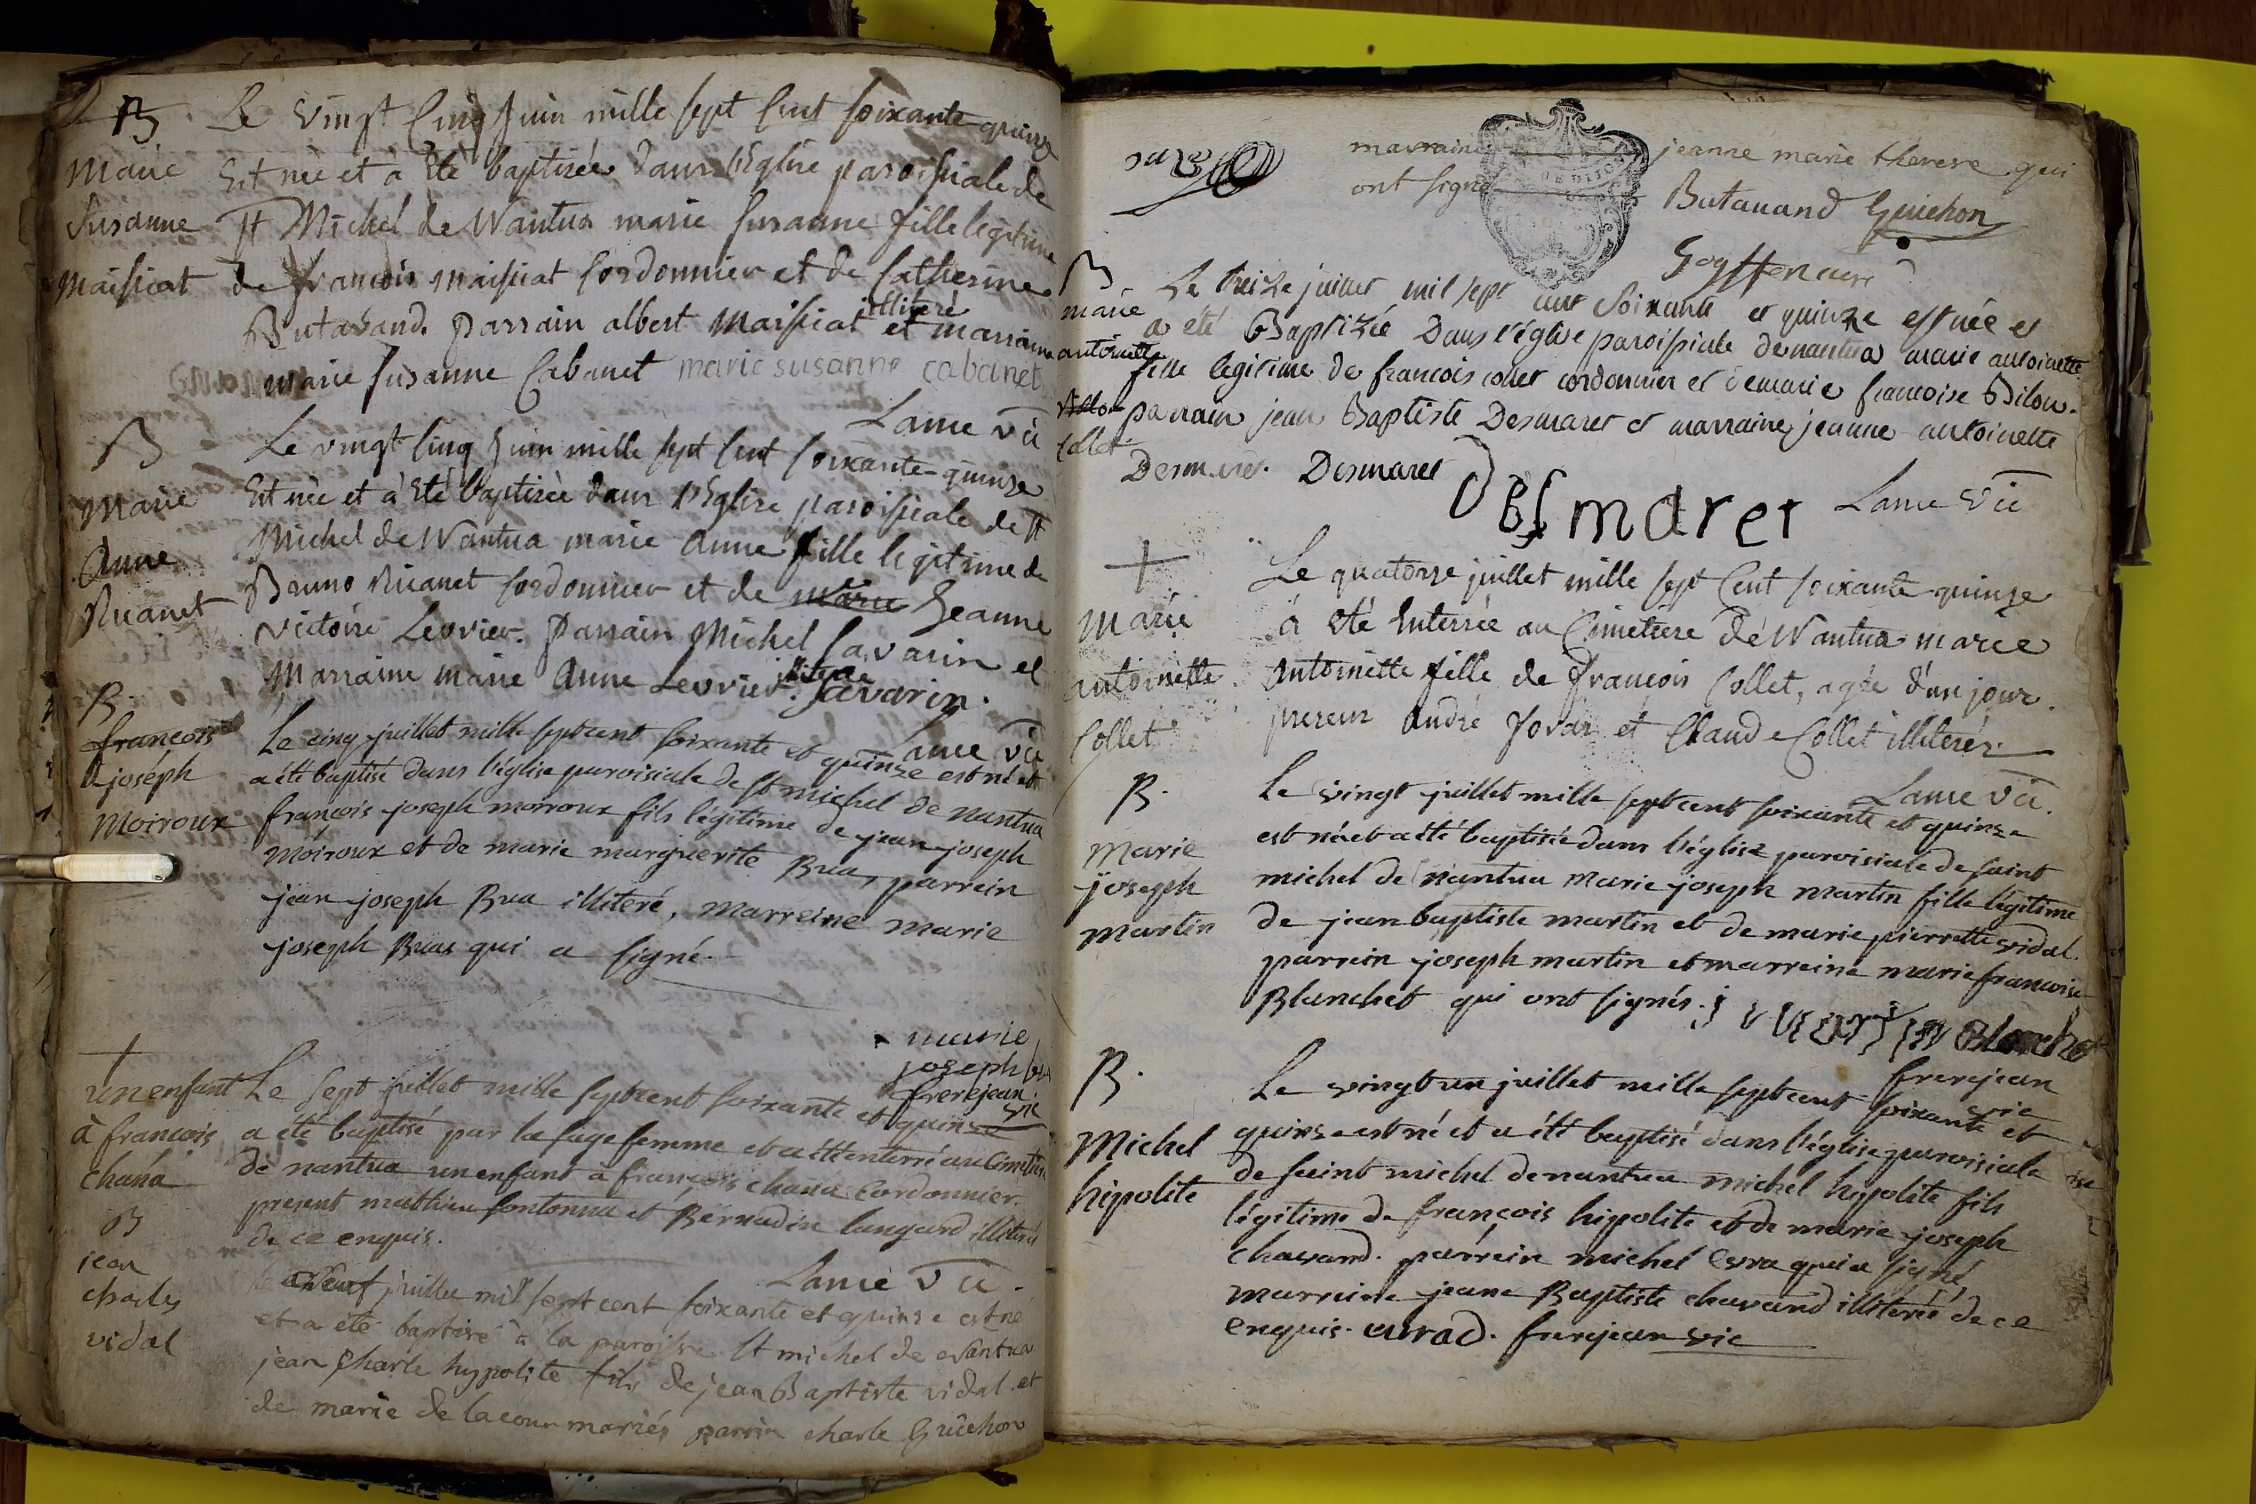 B
Marie
Susanne
Maissiat
Le vingt Cinq Juin mille sept Cent soixante quinze
Est née et à Eté baptisée dans l'Eglise paroissiale de
St Michel de Nantua marie Susanne fille légitime
de françois Maissiat Cordonnier et de Catherine
Butavand. Parrain albert Maissiat illiteré et marraine
marie Susanne Cabanet marie susanne cabanet
Lame vic
B
Marie
Anne
Nicanet
Le vingt Cinq Juin mille sept Cent soixante quinze
Est née et à Eté baptisée dans l'Eglise paroissiale de St
Michel de Nantua marie Anne fille légitime de
Bruno Nicanet Cordonnier et de marie Jeanne
victoire Levrier. Parrain Michel Savarin et
Marraine marie Anne Levrier illiterée Savarin.
Lame vic
B.
françois
joseph
Moiroux
Le cinq juillet mille sept cent soixante et quinze est né et
a été baptisé dans l'église paroisiale de st michel de nantua
françois joseph moiroux fils légitime de jean joseph
Moiroux et de marie marguerite Bua, parrein
jean joseph Bua illiteré, marreine marie
joseph Buas qui a signé.
marie
joseph bua
frerejean
vic
+
un enfant
à françois
Chana
Le Sept juillet mille sept cent soixante et quinze
a été baptisé par la sage femme et a été enterré au Cimetière
de nantua un enfant à françois chana Cordonnier.
present mathieu fontonna et Bernadin Laugard illiterés
de ce enquis.
Lame vic.
B
jean
charles
vidal
le neuf juillet mil sept cent soixante et quinze est né
et a été baptisé à la paroisse St michel de Nantua
jean Charle hypolite fils de jean Baptiste vidal et
de marie de lacour mariés parrin charle Guichon
marraine jeanne marie therese qui
ont signé Butavand Guichon
Goyffon curé
B
marie
antoinette
Collet
Le treize juillet mil sept cent Soixante et quinze est née et
a été Baptizée Dans l'église paroissiale de nantua marie antoinette
fille legitime de francois collet cordonnier et de marie francoise Bilon.
parrain jean Baptiste Desmaret et marraine jeanne antoinette
Desmaret. Desmaret Desmaret Lame vic
+
Marie
antoinette
Collet
Le quatorze juillet mille sept Cent soixante quinze
à Eté Enterrée au Cimetiere de Nantua marie
Antoinette fille de françois Collet, agée d'un jour.
presens André Jovar et Claude Collet illiterés.
Lame vic.
B.
Marie
joseph
martin
Le vingt juillet mille sept cent soixante et quinze
est née et a été baptisée dans l'église paroisiale de saint
michel de nantua marie joseph martin fille légitime
de jean baptiste martin et de marie pierrette vidal.
parrein joseph martin et marreine marie francoise
Blanchet qui ont signés. j martin Blanchet
frerejean
vic
B.
Michel
hipolite
Le vingt un juillet mille sept cent soixante et
quinze est né et a été baptisé dans l'église paroisiale
de saint michel de nantua michel hypolite fils
légitime de françois hippolite et de marie joseph
chavand. parrein michel Curra qui a signé,
marreine jeane Baptiste chavand illiterée de ce
enquis. curad. frerejean vic